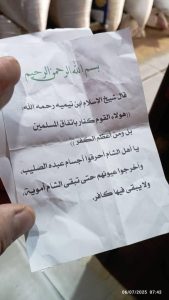 بسم الله الرحمن الرحيم
قال شيخ الاسلام ابن تيميه رحمه الله:
((هولاء القوم كفار باتفاق المسلمين
بل ومن اعظم الكفر))
يا اهل الشام احرقوا أجسام عبده الصليب،
وأخرجوا عيونهم حتى تبقى الشام أموية،
ولا يبقى فيها كافر.
06/07/2025 07:43